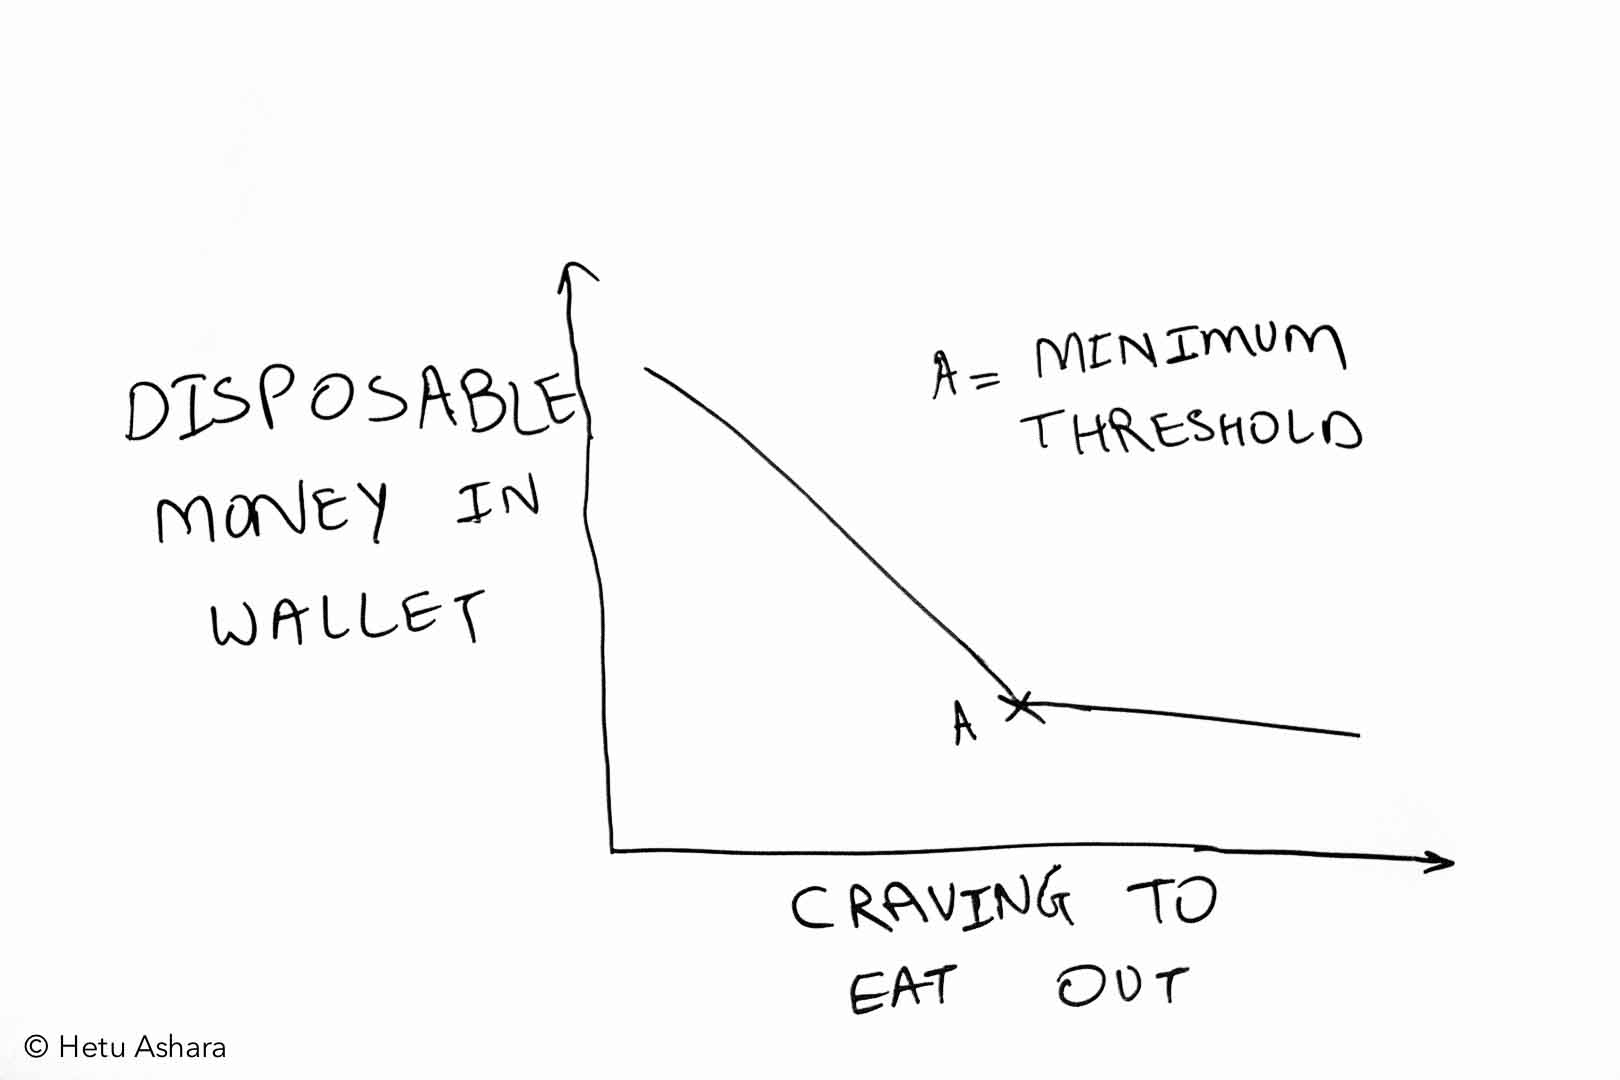 DISPOSABLE
MONEY IN
WALLET
A = MINIMUM
THRESHOLD
A
CRAVING TO
EAT OUT
© Hetu Ashara